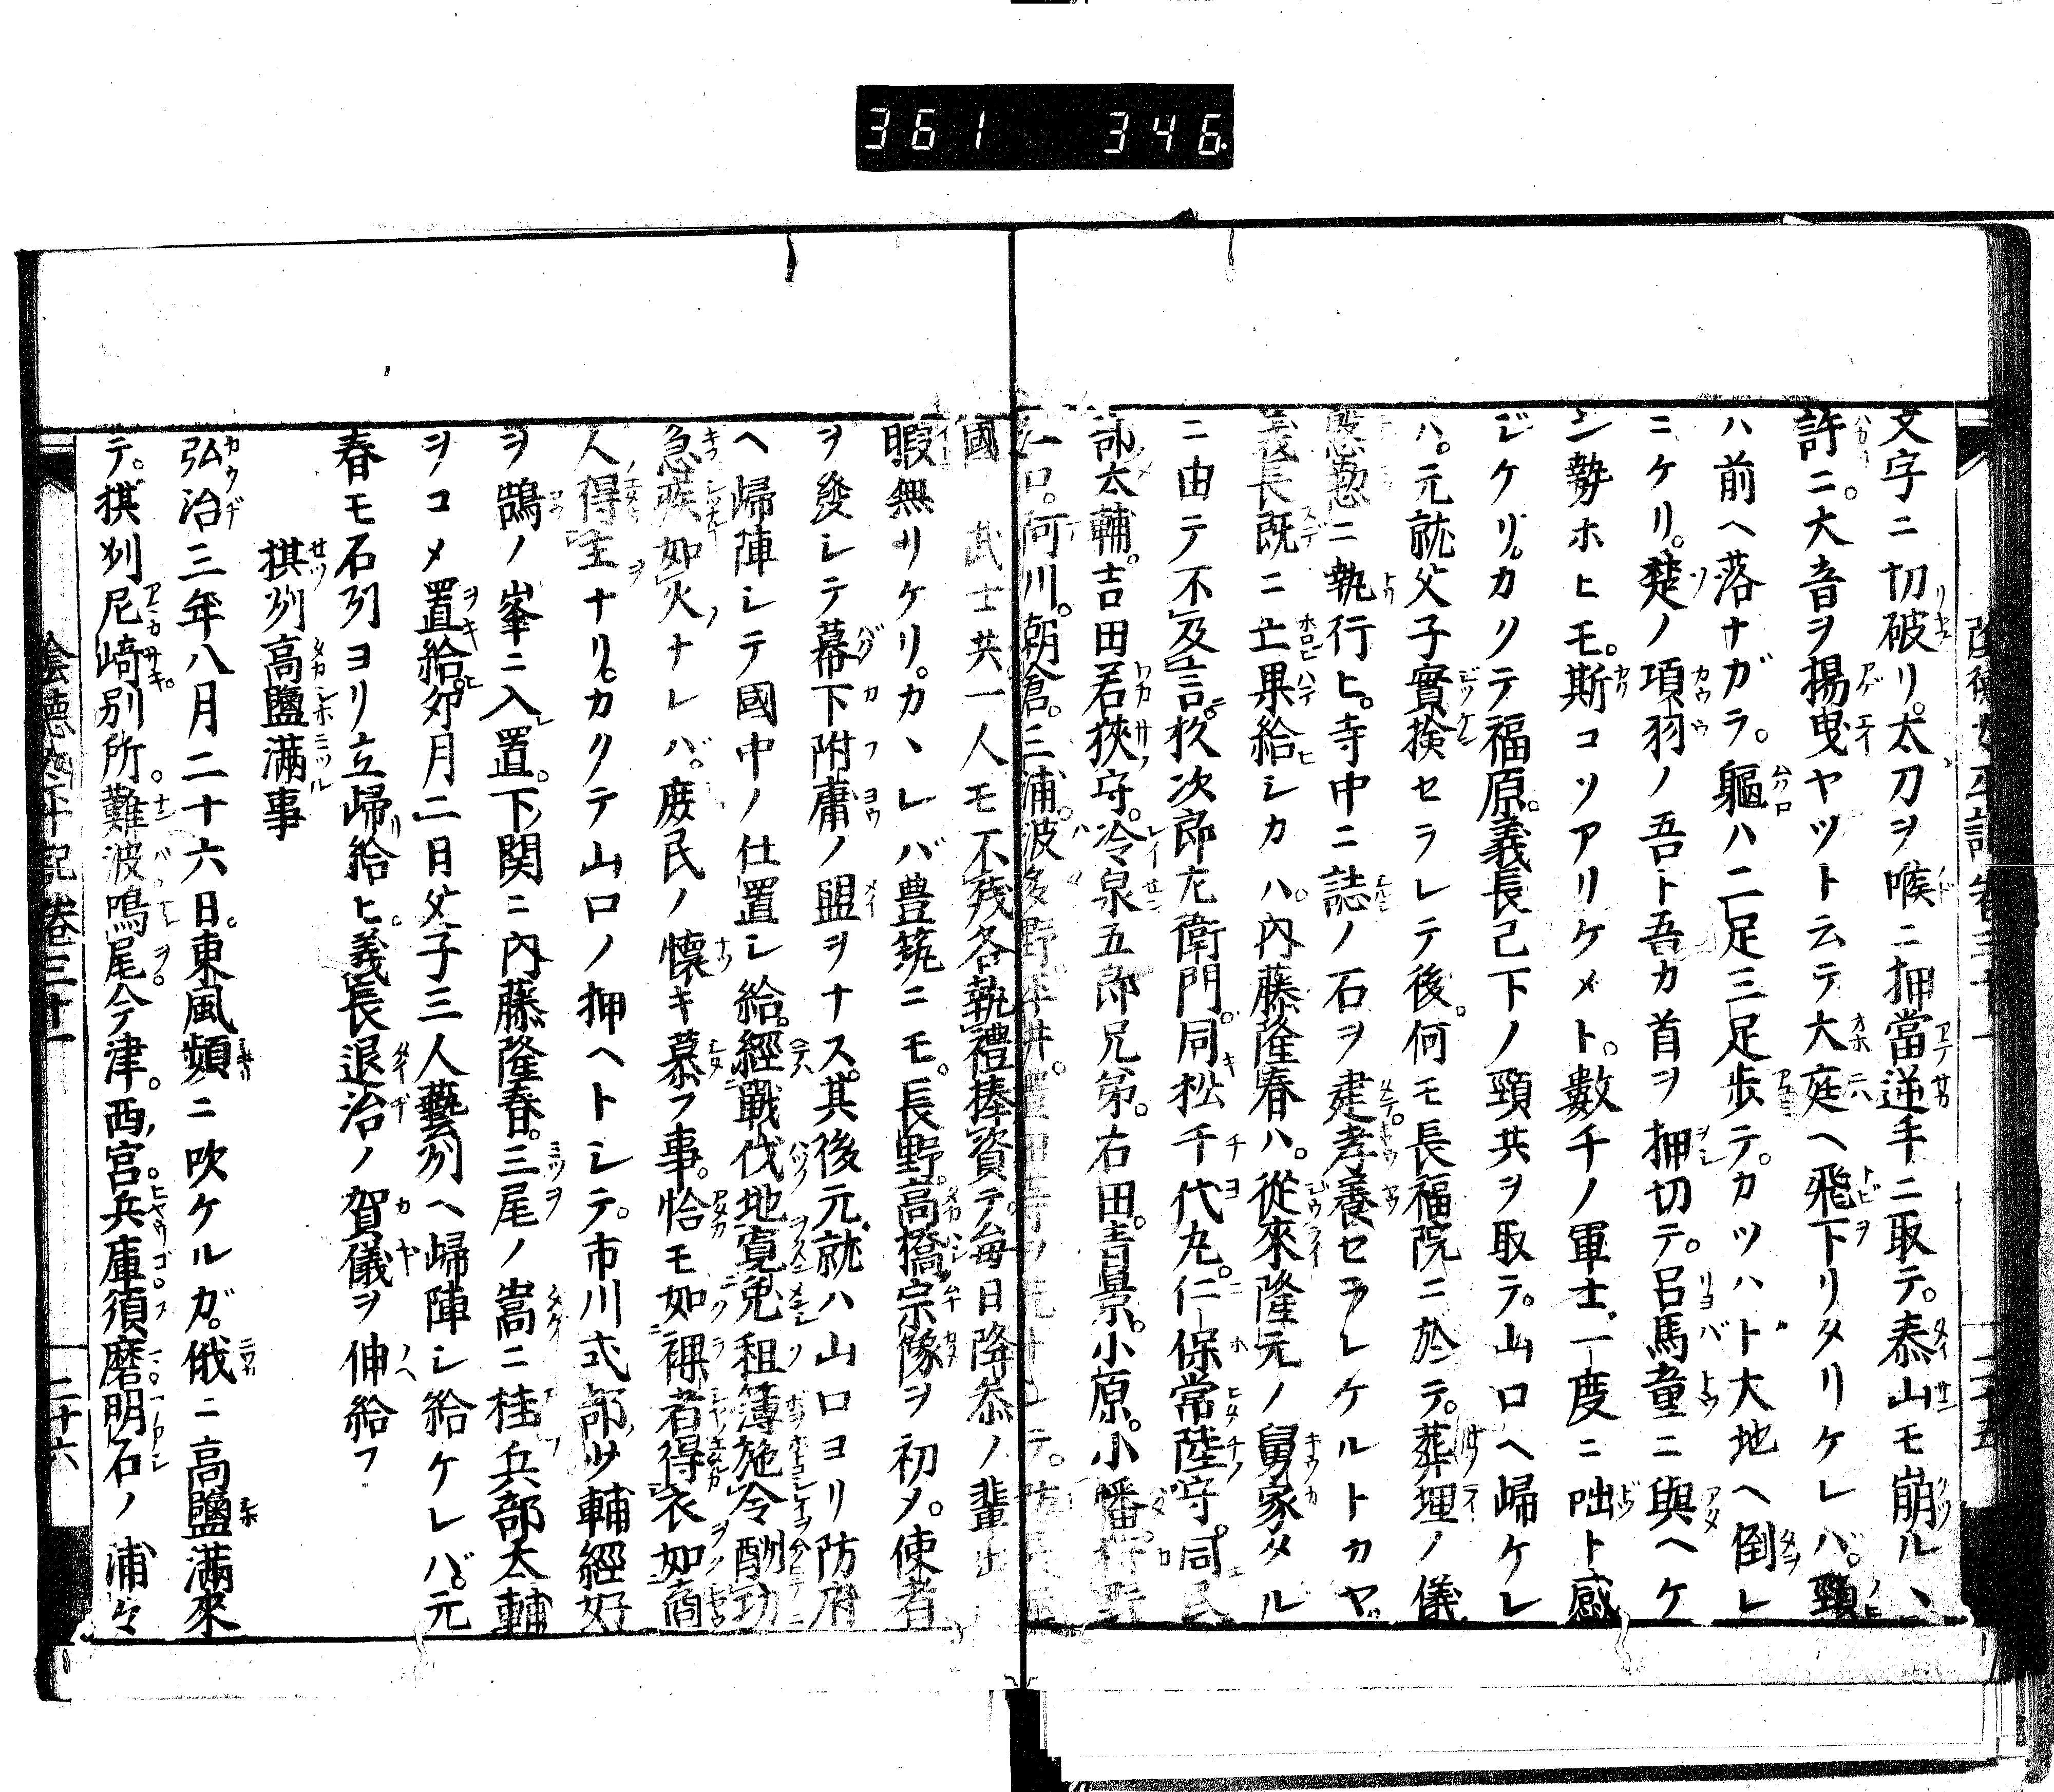 361 346
文字ニ切破リ。太刀ヲ喉ニ押當逆手ニ取テ。泰山モ崩ルヽ
許ニ。大音ヲ揚曳ヤツト云テ大庭ヘ飛下リタリケレバ。頸
ハ前ヘ落ナガラ。軀ハ二足三足歩テ。カツハト大地ヘ倒レ
ニケリ。楚ノ項羽ノ吾ト吾カ首ヲ押切テ。呂馬童ニ與ヘケ
ン勢ホヒモ。斯コソアリケメト。數千ノ軍士、一度ニ咄ト感
ジケリ。カクテ福原。義長已下ノ頸共ヲ取テ。山口ヘ歸ケレ
ハ。元就父子實撿セラレテ後。何モ長福院ニ於テ。葬埋ノ儀
慇懃ニ執行ヒ。寺中ニ誌ノ石ヲ建孝養セラレケルトカヤ
義長既ニ亡果給シカハ。内藤隆春ハ。從來隆元ノ舅家タル
ニ由テ不及言。杦次郎左衛門。同松千代丸。仁保常陸守。同民
部太輔。吉田若狹守。冷泉五郎兄弟。右田。青景。小原。小幡。野
口。河川。朝倉。三浦。波多野。
國武士共一人モ不殘各執禮捧資テ。毎日降参ノ輩出
暇無リケリ。カヽレバ豊筑ニモ。長野。高橋。宗像ヲ初メ。使者
ヲ發シテ幕下附庸ノ盟ヲナス。其後元就ハ山口ヨリ防府
ヘ歸陣シテ國中ノ仕置シ給。經戰伐地寛免租簿施令酬功
急疾如火ナレバ。庻民ノ懷キ慕フ事。恰モ如裸者得衣如商
人得主ナリ。カクテ山口ノ押ヘトシテ。市川式部少輔經好
ヲ鴻ノ峯ニ入置。下関ニ内藤隆春。三尾ノ嵩ニ桂兵部太輔
ヲコメ置給。夘月二日父子三人藝州ヘ歸陣シ給ケレバ。元
春モ石州ヨリ立歸給ヒ。義長退治ノ賀儀ヲ伸給フ
棋州高鹽満事
弘治三年八月二十六日。東風頻ニ吹ケルガ。俄ニ高鹽満來
テ。棋州尼﨑別所。難波鳴尾今津。西宮。兵庫須磨明石ノ浦々
陰徳太平記卷三十一
二十六